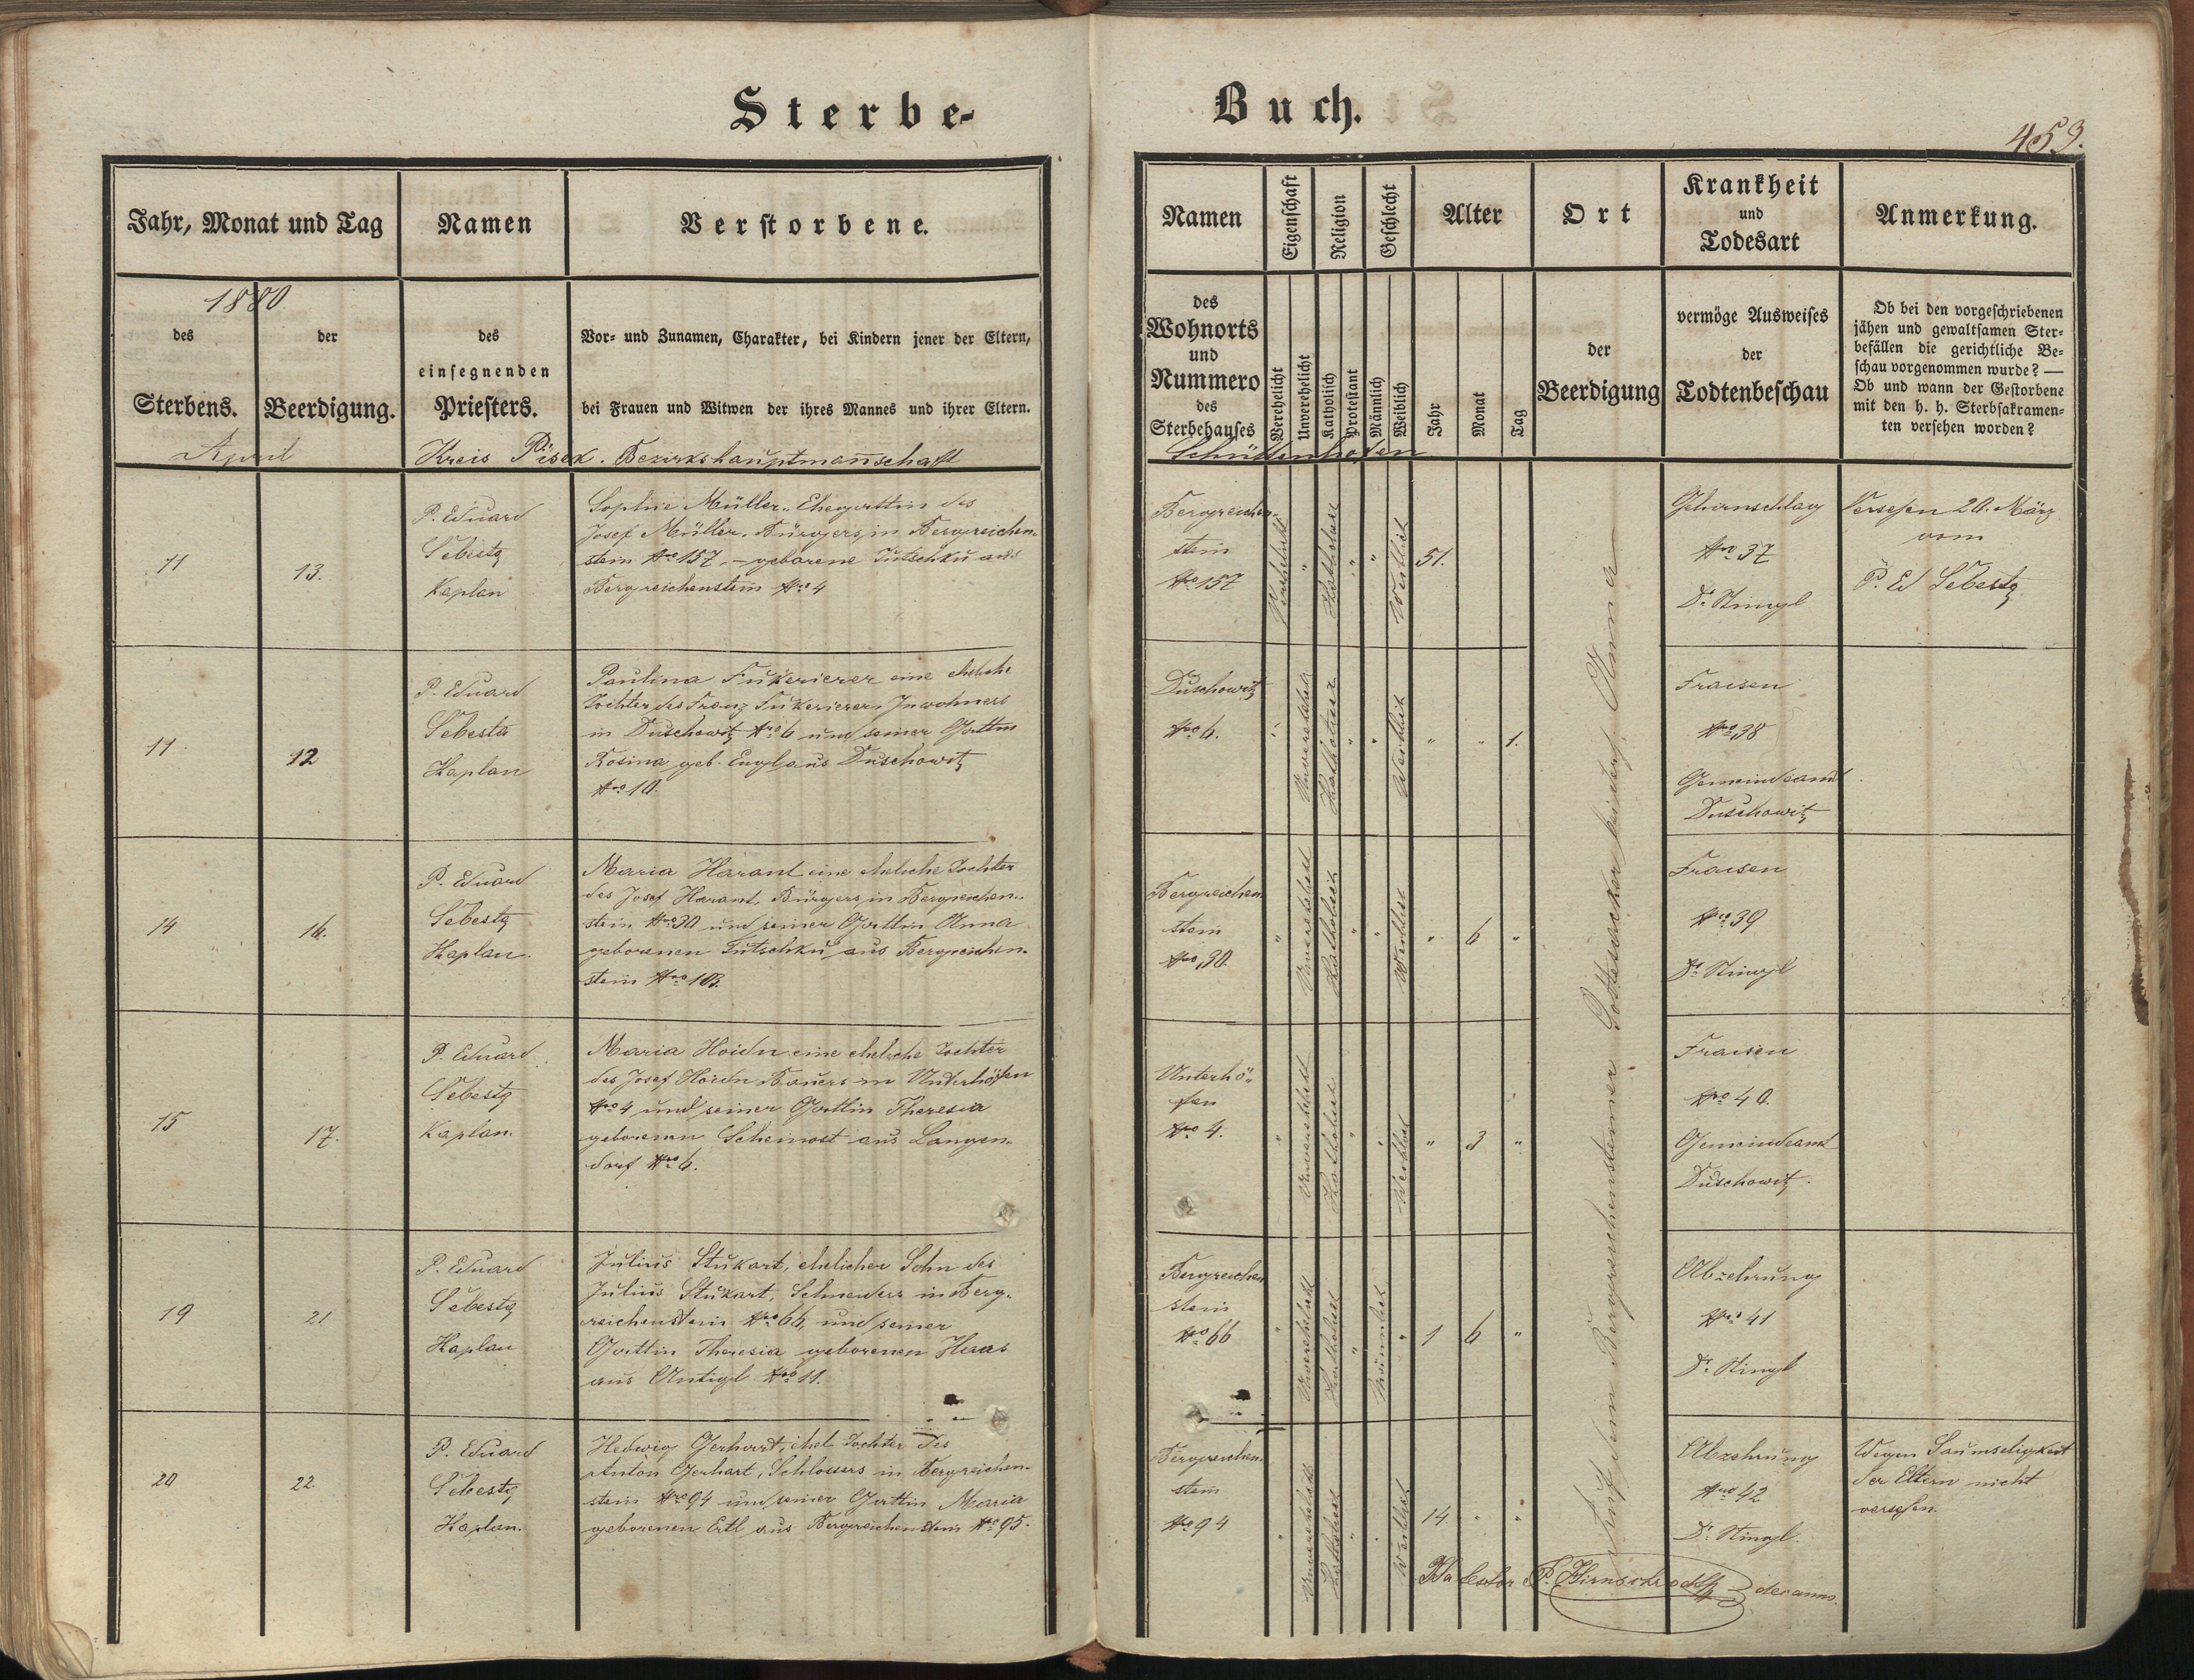 Sterbe-
Jahr, Monat und Tag
Namen
Verstorbene.
1880
des
Sterbens.
der
Beerdigung.
des
einsegnenden
Priesters.
Vor- und Zunamen, Charakter, bei Kindern jener der Eltern,
bei Frauen und Witwen der ihres Mannes und ihrer Eltern.
April
Kreis Pisek. Bezirkshauptmannschaft
11
13.
P. Eduard
Šebesta
Kaplan
Sophie Müller, Ehegattin des
Josef Müller, Bürgers in Bergreichen-
stein Nro 157, – geborene Tutschku aus
Bergreichenstein Nro 4
11.
12
P. Eduard
Šebesta
Kaplan
Paulina eine eheliche
Tochter des Franz Inwohners
in Duschowitz Nro 6 und seiner Gattin
Rosina geb. Engl aus Duschowitz
Nro 10.
14
16.
P. Eduard
Šebesta
Kaplan.
Maria Harant eine eheliche Tochter
des Josef Harant, Bürgers in Bergreichen-
stein Nro 30 und seiner Gattin Anna
geborenen Tutschku aus Bergreichen-
stein Nro 103.
15
17.
P. Eduard
Šebesta
Kaplan.
Maria Hoidn eine eheliche Tochter
des Josef Hoidn Bauers in Unterhöfen
Nro 4 und seiner Gattin Theresia
geborenen Scheinost aus Langen-
dorf Nro 6.
19
21
P. Eduard
Šebesta
Kaplan
Julius Stukart, ehelicher Sohn des
Julius Stukart, Schneiders in Berg-
reichenstein Nro 66, und seiner
Gattin Theresia geborenen Haas
aus Antigl Nro 11.
20
22.
P. Eduard
Šebesta
Kaplan.
Hedwig Gerhart, ehel. Tochter des
Anton Gerhart, Schlossers in Bergreichen-
stein Nro 94 und seiner Gattin Maria
geborenen Ertl aus Bergreichenstein Nro 95.
Buch.
453.
Namen
Eigenschaft
Religion
Geschlecht
Alter
Ort
Krankheit
und
Todesart
Anmerkung.
des
Wohnorts
und
Nummero
des
Sterbehauses
Verehelicht
Unverehelicht
Katholisch
Protestant
Männlich
Weiblich
Jahr
Monat
Tag
der
Beerdigung
vermöge Ausweises
der
Todtenbeschau
Ob bei den vorgeschriebenen
jähen und gewaltsamen Ster-
befällen die gerichtliche Be-
schau vorgenommen wurde? —
Ob und wann der Gestorbene
mit den h. h. Sterbsakramen-
ten versehen worden?
Schüttenhofen
Bergreichen-
stein
Nro 157
Verehelicht
"
Katholisch
"
"
Weiblich
51.
Gehirnschlag
Nro 37
Dr. Stingl
Versehen 20. März
vom
P. Ed Šebesta
Duschowitz
Nro 6.
"
Unverehelicht
Katholisch
"
"
Weiblich
"
"
1.
Fraisen
Nro 38
Gemeindeamt
Duschowitz
Bergreichen
stein
Nro 30.
"
Unverehelicht
Katholisch
"
"
Weiblich
"
6
"
Fraisen
Nro 39
Dr. Stingl
Unterhö-
fen
Nro 4.
"
Unverehelicht
Katholisch
"
"
Weiblich
"
3
"
Fraisen
Nro 40.
Gemeindeamt
Duschowitz.
Bergreichen
stein
Nro 66
"
Unverehelicht
Katholisch
"
Männlich
"
1
6
"
Abzehrung
Nro 41
Dr. Stingl
Bergreichen.
stein
Nro 94
"
Unverehelicht
Katholisch
"
"
Weiblich
14.
"
"
Abzehrung
Nro 42
Dr. Stingl.
Wegen Saumseligkeit
der Eltern nicht
versehen.
Auf dem Bergreichensteiner Gottesacker bei
P. decanus.